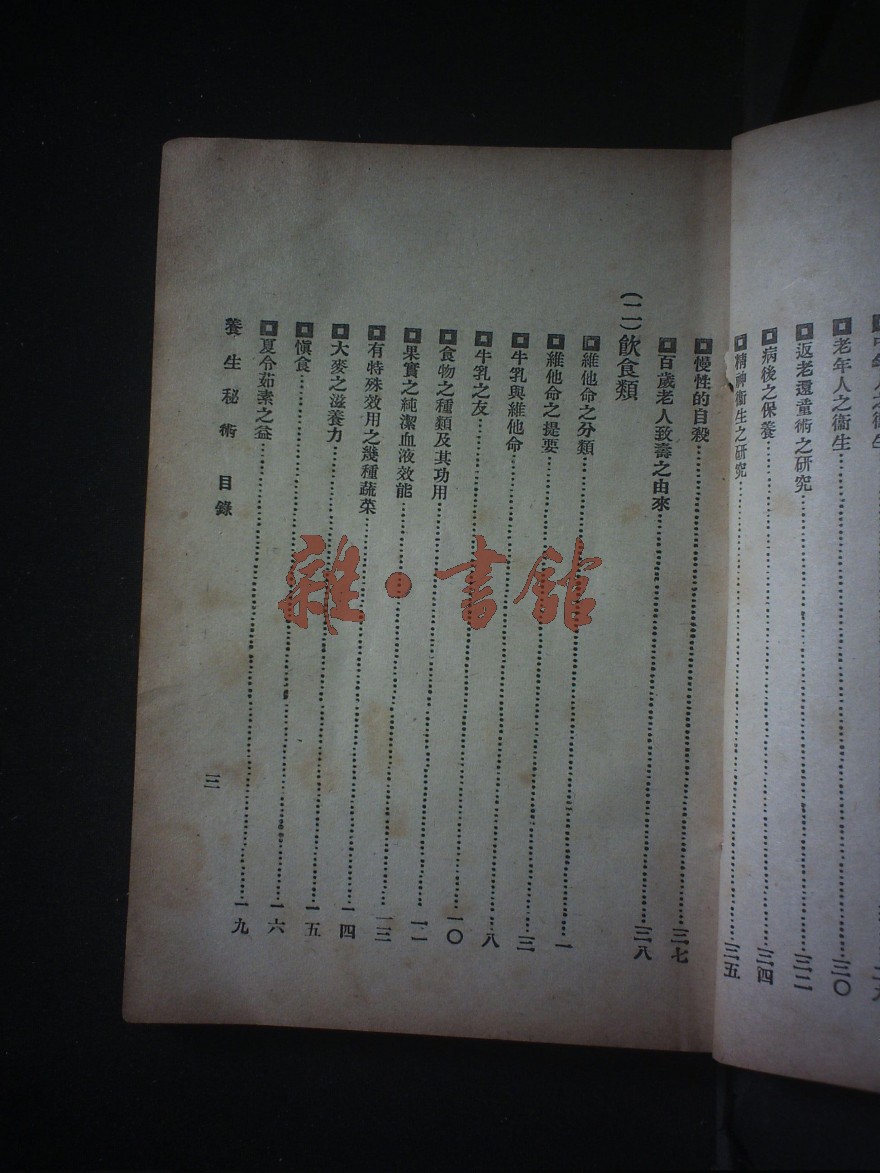 老年人之衞生……三〇
返老還童術之研究……三二
病後之保養……三四
精神衞生之研究……三五
慢性的自殺……三七
百歲老人致壽之由來……三八
(二)飲食類
維他命之分類……一
維他命之提要……三
牛乳與維他命……八
牛乳之友……一〇
食物之種類及其功用……一二
果實之純潔血液效能……一三
有特殊效用之幾種蔬菜……一四
大麥之滋養力……一五
愼食……一六
夏令茹素之益……一九
養生秘術 目錄 三
雜·書館